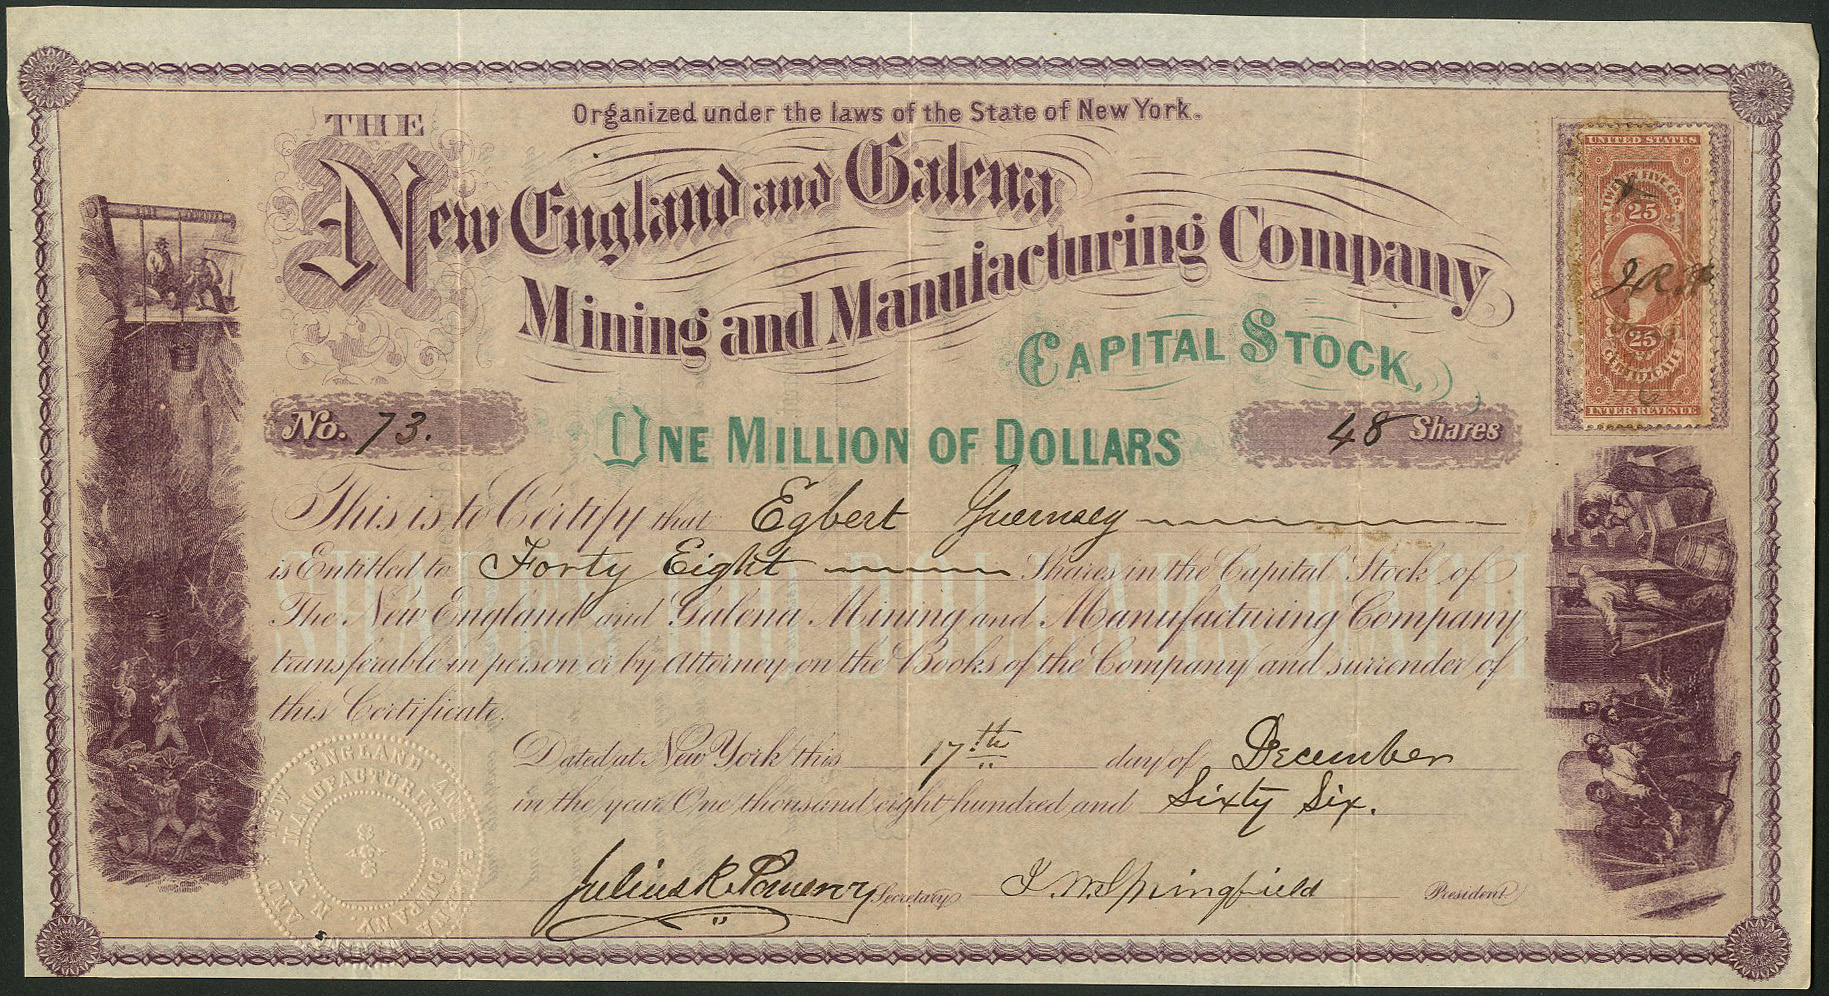 Organized under the laws of the State of New York.
THE
New England and Galena
Mining and Manufacturing Company,
CAPITAL STOCK,
No. 73.
ONE MILLION OF DOLLARS
48 Shares
This is to Certify that Egbert Guernsey
is Entitled to Forty Eight Shares in the Capital Stock of
The New England and Galena Mining and Manufacturing Company
transferable in person or by Attorney on the Books of the Company and surrender of
this Certificate.
SHARES 100 DOLLARS EACH
Dated at New York this 17th day of December
in the year One thousand eight hundred and Sixty Six.
Julius R. Pomeroy Secretary
Springfield President
UNITED STATES
TWENTY FIVE CTS.
25
J.R.
25
CERTIFICATE
INTER. REVENUE
NEW ENGLAND AND GALENA
AND MANUFACTURING COMPANY. N.Y.